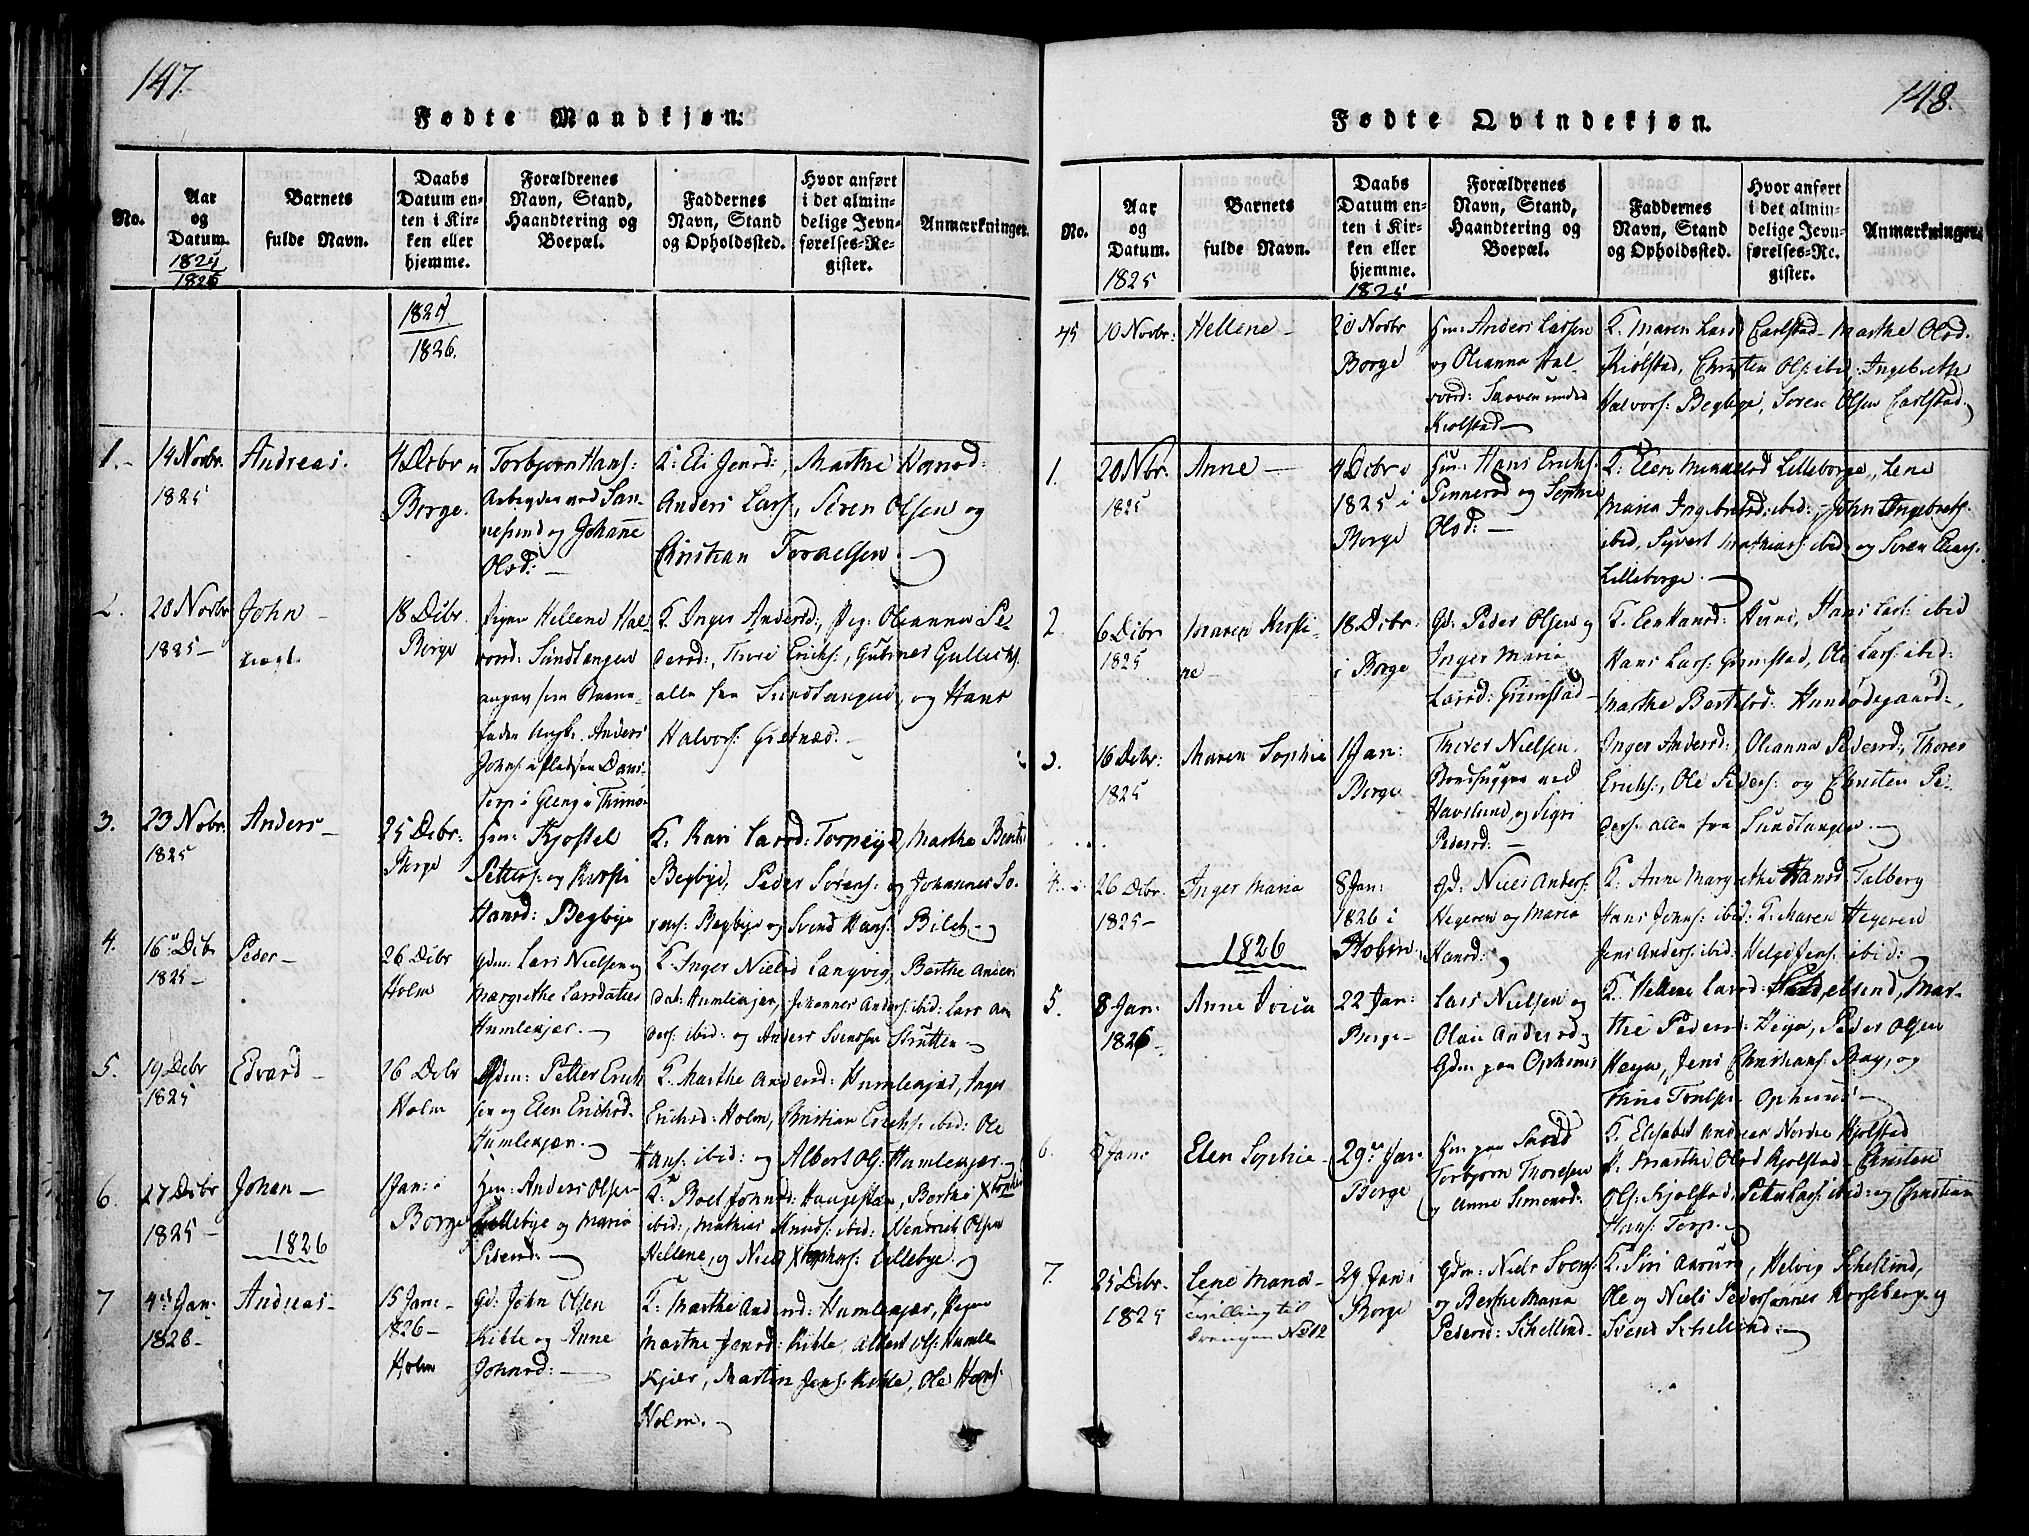 147.
Fødte Mandkjøn.
No.
Aar
og
Datum.
1824
1825
Barnets
fulde Navn.
Daabs
Datum en-
ten i Kir-
ken eller
hjemme.
Forældrenes
Navn, Stand,
Haandtering og
Boepæl.
Faddernes
Navn, Stand
og Opholdssted.
Hvor anført
i det almin-
delige Jevn-
førelses-Re-
gister.
Anmærkninger
1825
1826.
1.
14 Novbr.
1825
Andreas.
4 Debr
Borge.
Torbjørn Hans:
Arbeyder ved San-
nesund og Johanne
Olsd: —
K: Eli Jensd:, Marthe Hansd:
Anders Lars:, Søren Olsen og
Christian Torgelsen.
2.
20 Novbr
1825 —
John —
uægt.
18 Debr.
Borge
Pigen Hellene Hal-
vorsd: Sundtangen
angav som Barne-
faden Ungk. Anders
Johns: i pladsen Dans-
torp i Gleng i Thunø
K. Inger Andersd:, Pig: Oleanna Pe-
dersd:, Thore Erichs:, Gubines Gullichs:
alle fra Sundtangen, og Hans
Halvors: Gretnæs. —
3.
23 Nobr.
1825
Anders —
25 Debr:
Borge
Hm: Kjøstel
Petters: og Kirsti
Hansd: Begbye
K. Kari Larsd: Torpeye, Marthe Bents:
Begbye, Peder Sørens: og Johannes Sø-
rens: Begbye og Svend Hans: Bilet —
4.
16 Debr
1825 —
Peder —
26 Debr
Holm
Gdm: Lars Nielsen og
Margrethe Larsdatter
Humlekjær. —
K. Inger Nielsd Langvig, Berthe Anders
dat: Humlekjær, Johannes Anders: ibid: Lars An
ders: ibid: og Anders Svendsen Strutten —
5.
19 Debr
1825
Edvard —
26 Debr
Holm
Gdm: Petter Erich
sen og Elen Erichsd.
Humlekjær. —
K. Marthe Andersd: Humlekjær, Inger
Erichsd: Holm, Christian Erichs: ibid: Ole
Hans: ibid: og Albert Ols: Humlekjær
6.
27 Debr
1825 —
Johan —
1826
1 Jan: i
Borge
Hm: Anders Olsen
Lillebye og Maria
Pedersd: —
K: Boel Johnsd: Haugesteen, Berthe
ibid:, Mathias Knuds: ibid: Hendrich Olsen
Hellene, og Niels Lillebye
7
4 Jan:
1826 —
Andreas —
15 Jan:
1826 —
Holm
Gd: John Olsen
Kihle og Anne
Johnsd: —
K: Marthe Andersd: Humlekjær, Pigen
Marthe Jensd: Kihle, Albert Ols: Humle
kjær, Martin Jens: Kihle, Ole Hans:
Holm. —
148.
Fødte Qvindekjøn.
No.
Aar
og
Datum.
1825
Barnets
fulde Navn.
Daabs
Datum en-
ten i Kir-
ken eller
hjemme.
1825
Forældrenes
Navn, Stand,
Haandtering og
Boepæl.
Faddernes
Navn, Stand
og Opholdssted.
Hvor anført
i det almin-
delige Jevn-
førelses-Re-
gister.
Anmærkninger.
45
10 Novbr:
Hellene —
20 Novbr
Borge
Hm: Anders Larsen
og Oleanna Hal-
vorsd: Skoven under
Kiolstad —
K. Maren Larsd Carlstad — Marthe Olsd.
Kiolstad, Christen Ols: ibid: Ingebreth
Halvors: Begbye, Søren Olsen Carlstad.
1.
20 Nbr.
1825
Anne —
4 Debr i
1825 i
Borge
Hm: Hans Erichs:
Pinnerød og Sophie
Olsd: —
K: Elen Lilleborge, Lene
Maria ibid: John Ingebrets.
ibid, Syvert Mathias: ibid og Søren
Lilleborge. —
2
6 Debr
1825
Maren Kirsti-
ne —
18 Debr:
i Borge
Gd: Peder Olsen og
Inger Maria
Larsd: Grimstad —
K. Hansd: Huni, Hans Lars: ibid
Hans Lars: Grimstad, Ole Lars: ibid:
Marthe Bertelsd: Hunsødegaard.
3.
16 Debr:
1825
Maren Sophie
1 Jan:
Borge
Thorer Nielsen
Bordhugger ved
Havslund, og Sigri
Pedersd: —
Inger Andersd: Oleanna Pedersd:, Thorer
Erichs:, Ole Peders: og Christen Pe-
ders: alle fra Sundtangen —
4.
26 Debr.
1825 —
Inger Maria
1826
8 Jan:
1826 i
Holm.
Gd: Niels Anders:
Hegeren og Maria
Hansd:
K: Anne Margrethe Hansd Talberg
Hans Johns: ibid: K. Maren Hegeren
Jens Anders: ibid: Helge Jens: ibid:
5.
8 Jan:
1826 —
Anne Joria
22 Jan:
Borge —
Lars Nielsen og
Olau Andersd
Gdm paa Ophuus
K. Hellene Larsd: Mar-
the Pedersd: Heya, Peder Olsen
Heya, Jens Christians: Ray, og
Ophuus —
6.
5 Jan:
Elen Sophie —
29 Jan
Borge
Hm paa
Torbjørn Thoresen
og Anne Simensd:
K. Elisabet Nordre Kjolstad
P. Marthe Olsd Kjolstad — Christen
Ols: Kjolstad, Peter Lars: ibid: og Christian
Hans: Torp.
7.
25 Debr.
1825
Lene Maria —
tvilling til
drengen No 12
29 Jan i
Borge
Gdm: Niels Svens:
og Berthe Maria
Pedersd: Schellind —
K. Siri , Helvig Schellind,
Ole og Niels Korseberg og
Svend Schellind: —